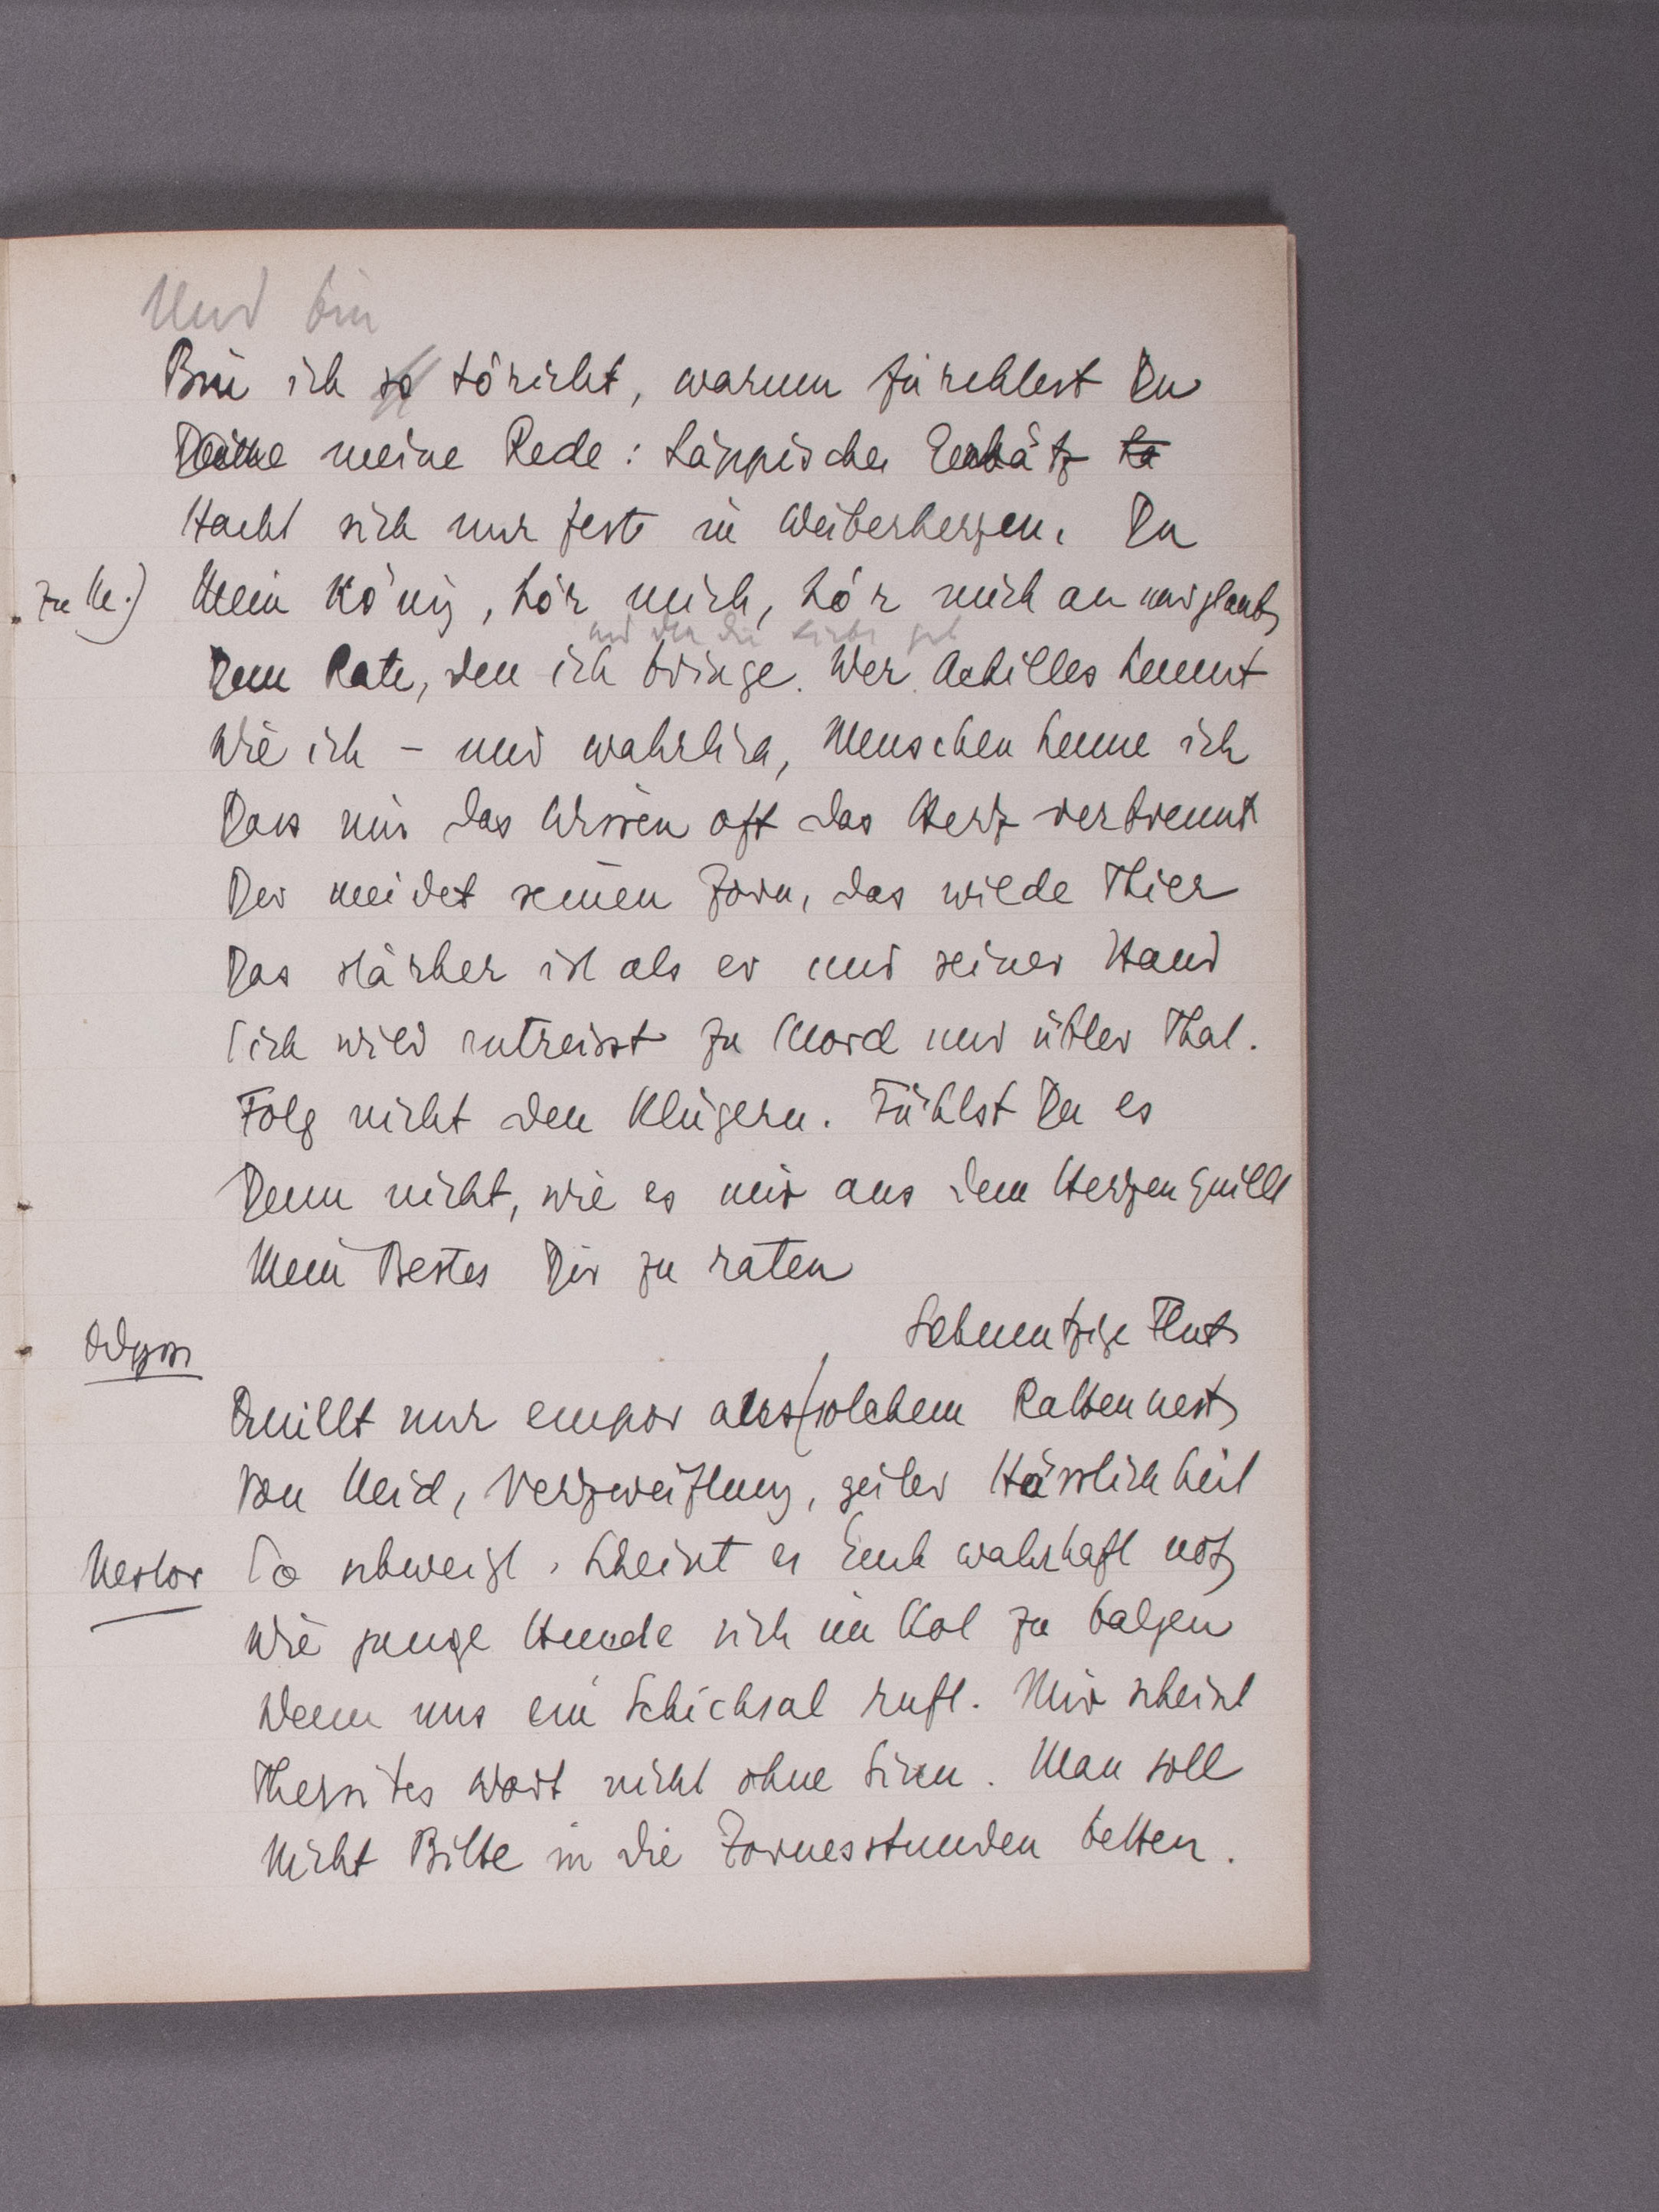 Und bin
Bin ich so töricht, warum fürchtest Du
meine Rede: Läppisches
Hackt sich nur fest in Weiberherzen. Du
zu M.) Mein König, hör mich, hör mich an und glaub
und den die Liebe
Dem Rate, den ich bringe. Wer Achilles kennt
Wie ich – und wahrlich, Menschen kenne ich
Dass mir das Wissen oft das Herz verbrennt
Der meidet seinen Zorn, das wilde Thier
Das stärker ist als er und seiner Hand
Sich wild entreisst zu Mord und übler That.
Folg nicht den Klügern. Fühlst Du es
Denn nicht, wie es mir aus dem Herzen quillt
Mein Bestes Dir zu raten
Schmutzige Flut
Odyss
Quillt nur empor aus solchem Rattennest
Von Neid, Verzweiflung, geiler Hässlichkeit
Nestor So schweigt. Scheint es Euch wahrhaft not
Wie junge Hunde sich im Kot zu balgen
Wenn uns ein Schicksal ruft. Mir scheint
Thersites Wort nicht ohne Sinn. Man soll
Nicht Bitte in die Zornesstunden betten.